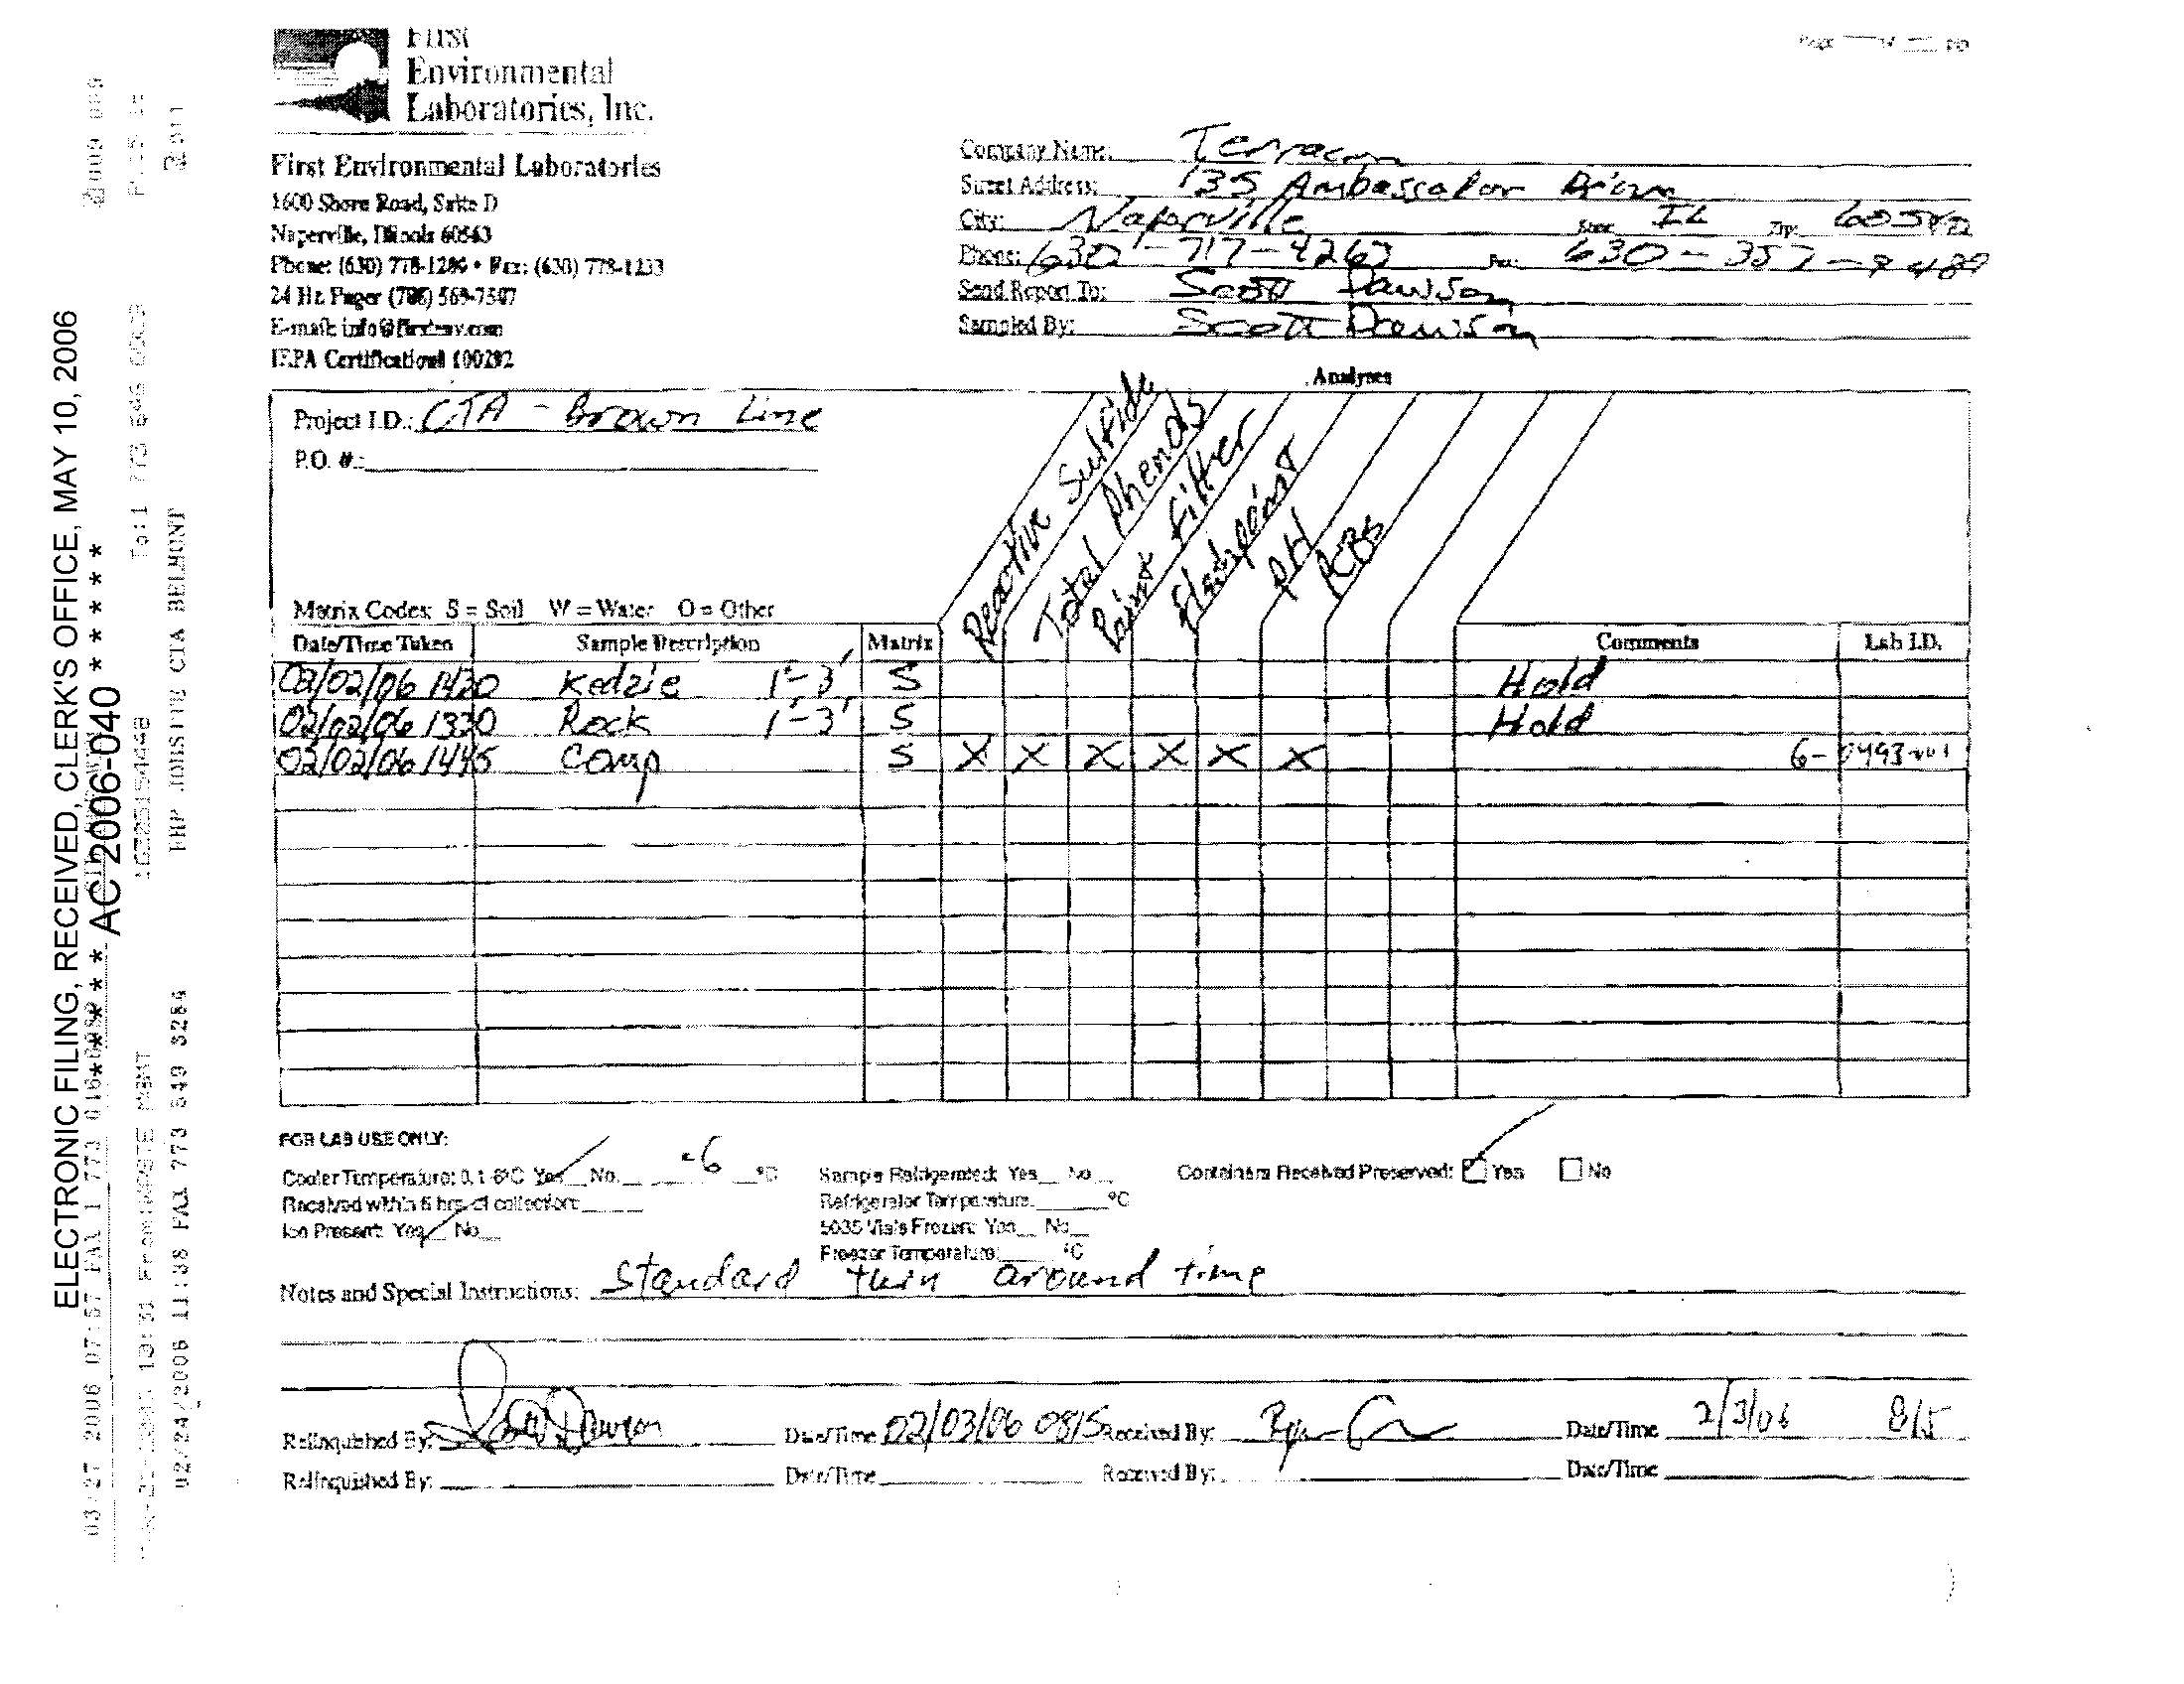 First
Environmental
Laboratories, Inc.
First Environmental Laboratories
1600 Shore Road, Suite D
Naperville, Illinois 60563
Phone: (630) 778-1200 • Fax: (630) 778-1233
24 Hr. Pager (708) 569-7507
E-mail: info@firstenv.com
IEPA Certification# 100292
Company Name: Terracon
Street Address: 135 Ambassador
City: Naperville State: IL Zip:
Phone: 630-717-4263 Fax: 630-357-9489
Send Report To: Scott Dawson
Sampled By: Scott Dawson
Analyses
Project I.D.: CTA - Brown Line
P.O. #.:
Reactive Sulfide
Total Phenols
Paint Filter
Flashpoint
PH
PCBs
Matrix Codes: S = Soil W = Water O = Other
Date/Time Taken Sample Description Matrix Comments Lab I.D.
02/02/06 1420 Kedzie 1'-3' S Hold
02/02/06 1330 Rock 1'-3' S Hold
02/02/06 1445 Comp S X X X X X X 6-0493-001
FOR LAB USE ONLY:
Cooler Temperature: 0.1-6°C Yes No -6 °C
Received within 6 hrs. of collection:
Ice Present: Yes No
Sample Refrigerated: Yes No
Refrigerator Temperature °C
5035 Vials Frozen: Yes No
Freezer Temperature: °C
Containers Received Preserved: Yes No
Notes and Special Instructions: Standard turn around time
Relinquished By: Date/Time 02/03/06 0815 Received By: Date/Time 2/3/06 815
Relinquished By: Date/Time Received By: Date/Time
ELECTRONIC FILING, RECEIVED, CLERK'S OFFICE, MAY 10, 2006
* * * * * AC 2006-040 * * * * *
03/27 2006 07:57 FAX 1 773
02/24/2006 11:38 FAX 773 549 3284 FHP JOBSITE CTA BELMONT